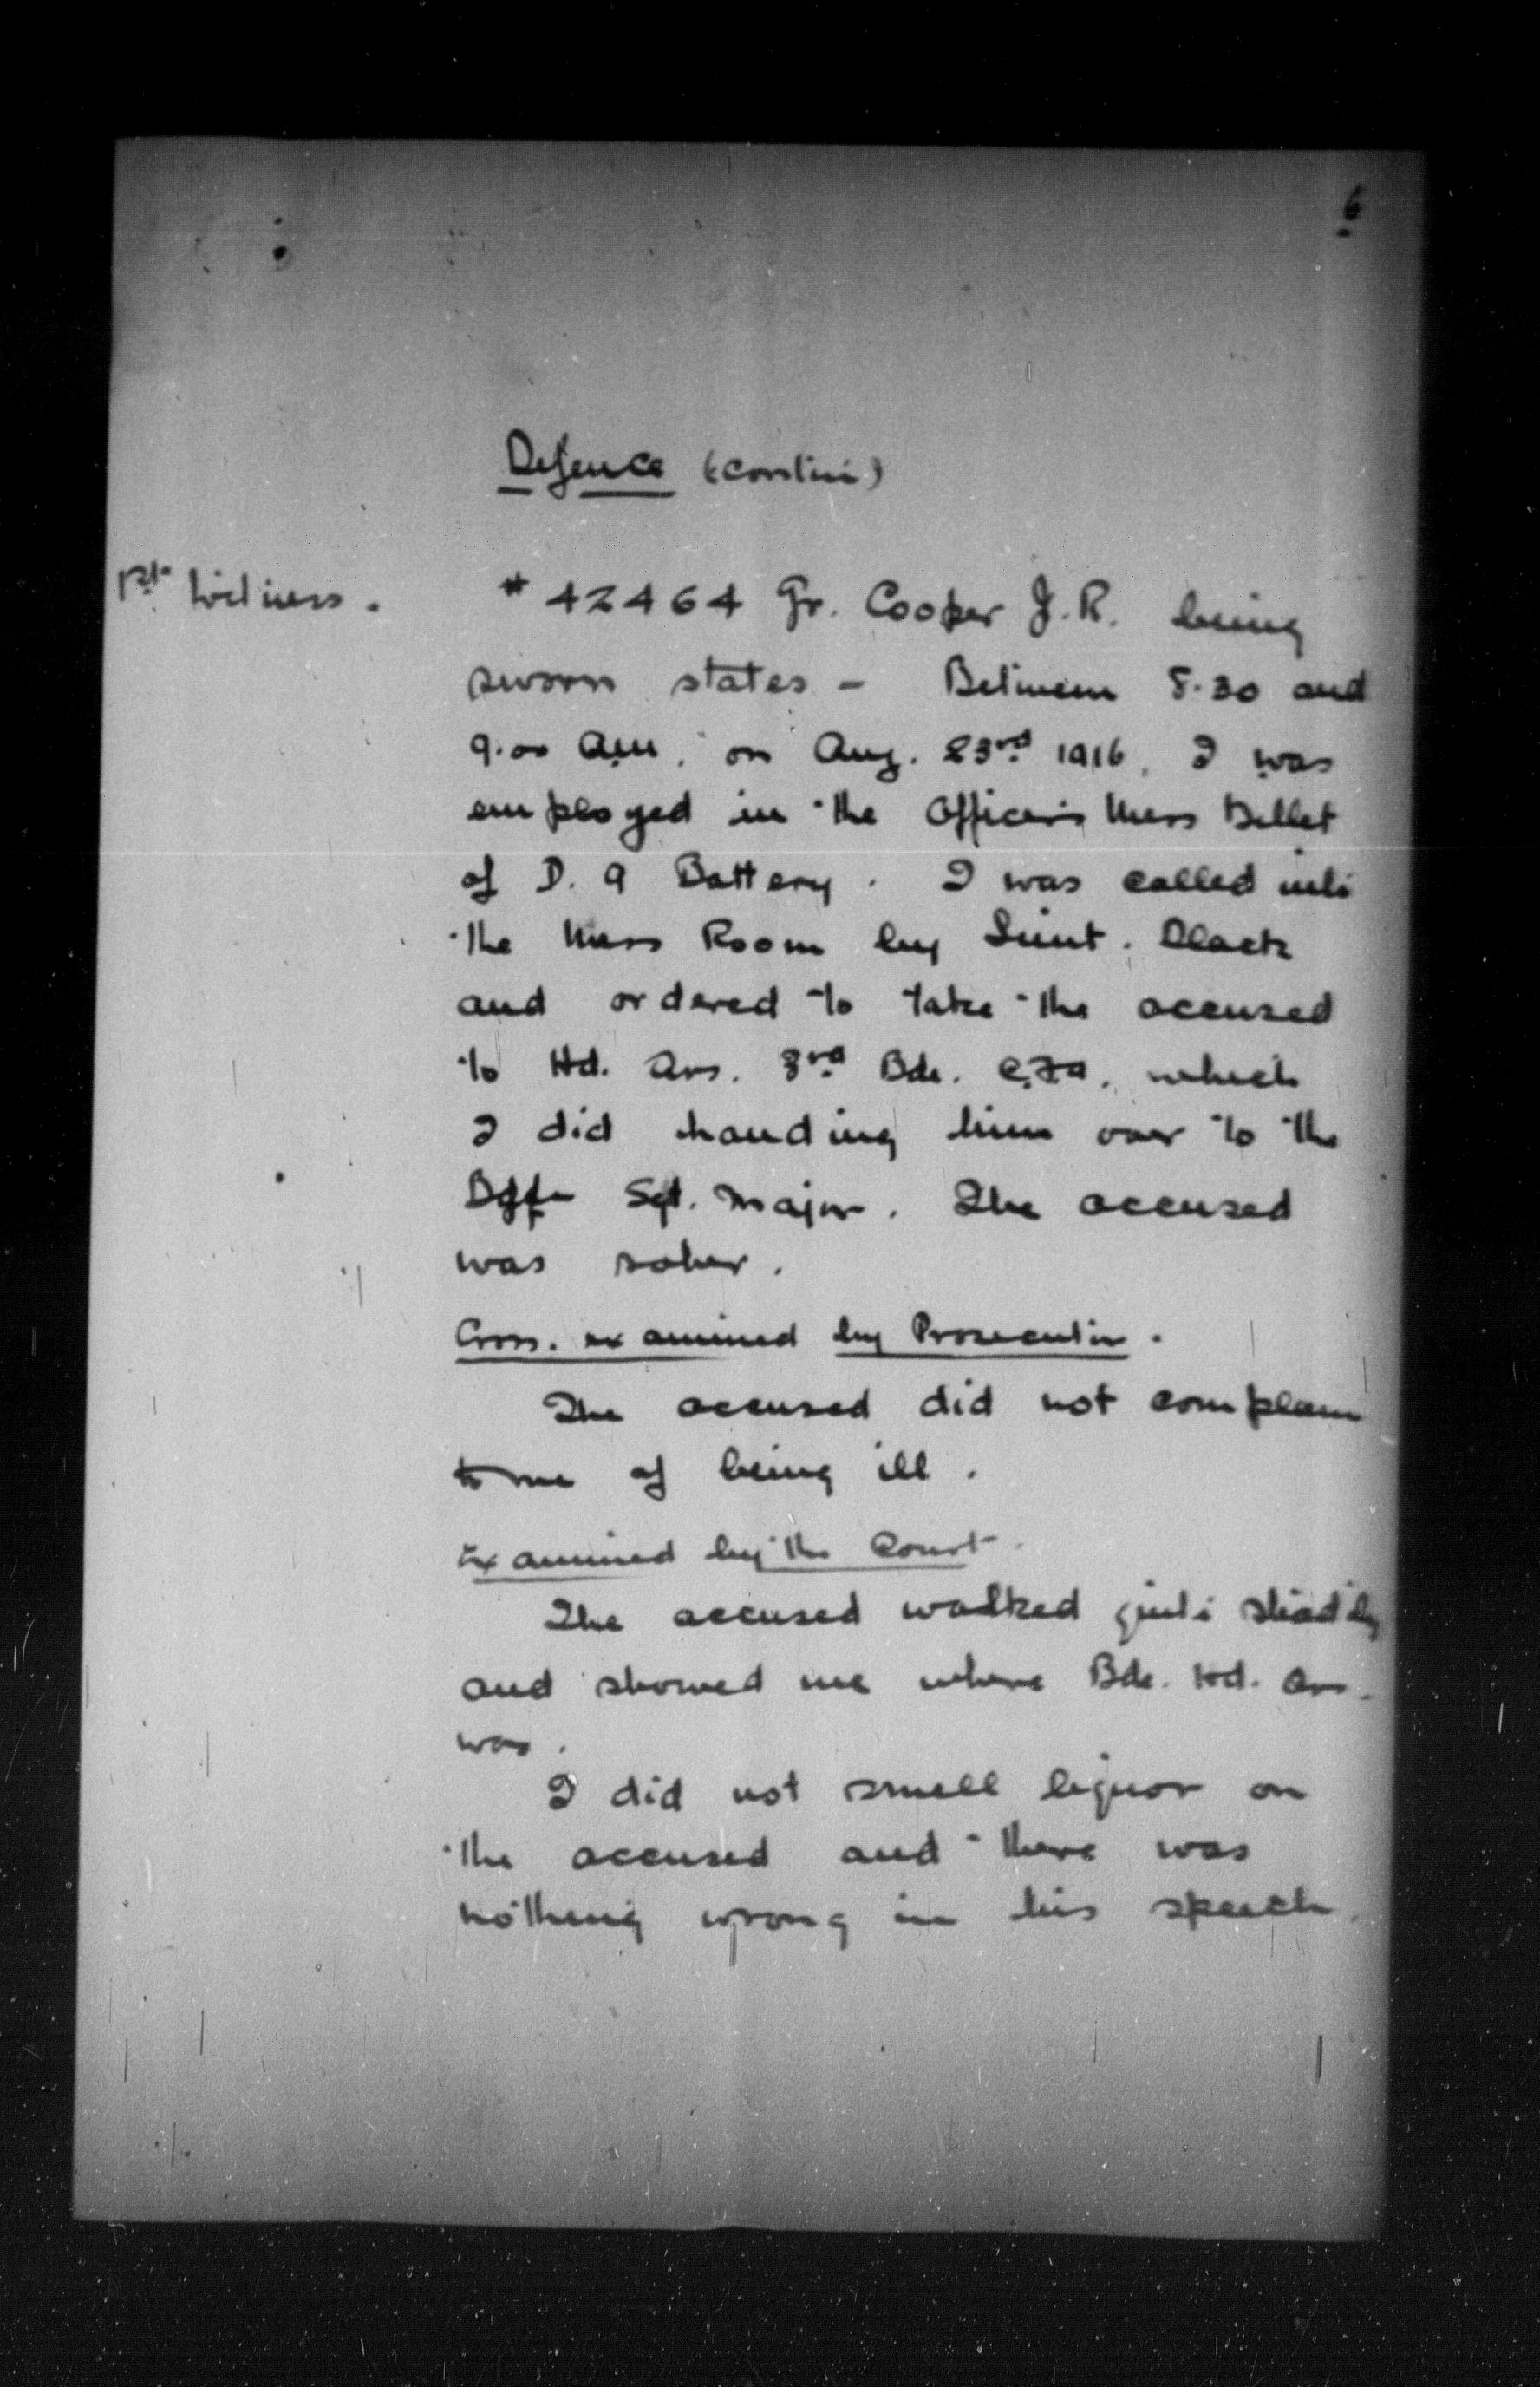 6
Defence (contin)
1st Witness.
# 42464 Gr. Cooper J.R. being
sworn states - Between 8.30 and
9.00 am, on Aug. 23rd 1916, I was
employed in the Officer's Mess Billet
of D. 9 Battery. I was called into
the Mess Room by Lieut. Black
and ordered to take the accused
to Hd. Qrs. 3rd Bde. C.F.A. which
I did handing him over to the
Sgt. Major. The accused
was sober.
Cross. examined by Prosecutor.
The accused did not complain
to me of being ill.
Examined by the Court.
The accused walked quite steadily
and showed me where Bde. Hd. Qrs.
was.
I did not smell liquor on
the accused and there was
nothing wrong in his speech.